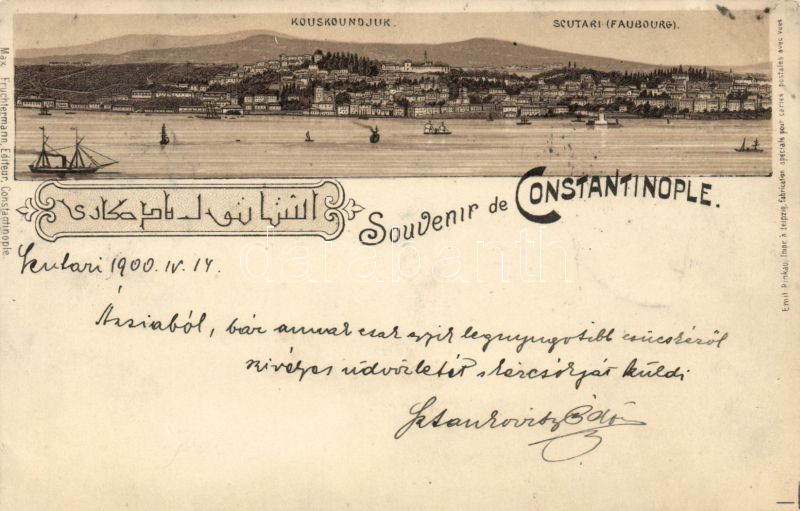 KOUSKOUNDJUK.
SCUTARI (FAUBOURG).
Max. Fruchtermann, Editeur, Constantinople.
Emil Pinkau, Impr. à Leipzig, fabrication spéciale pour cartes postales avec vues
Souvenir de CONSTANTINOPLE.
darabanth
Scutari 1900. IV. 14.
Ázsiából, bár annak csak egyik legnyugotibb csúcsáról
szívélyes üdvözletét s kézcsókját küldi
Stankovits Ödön